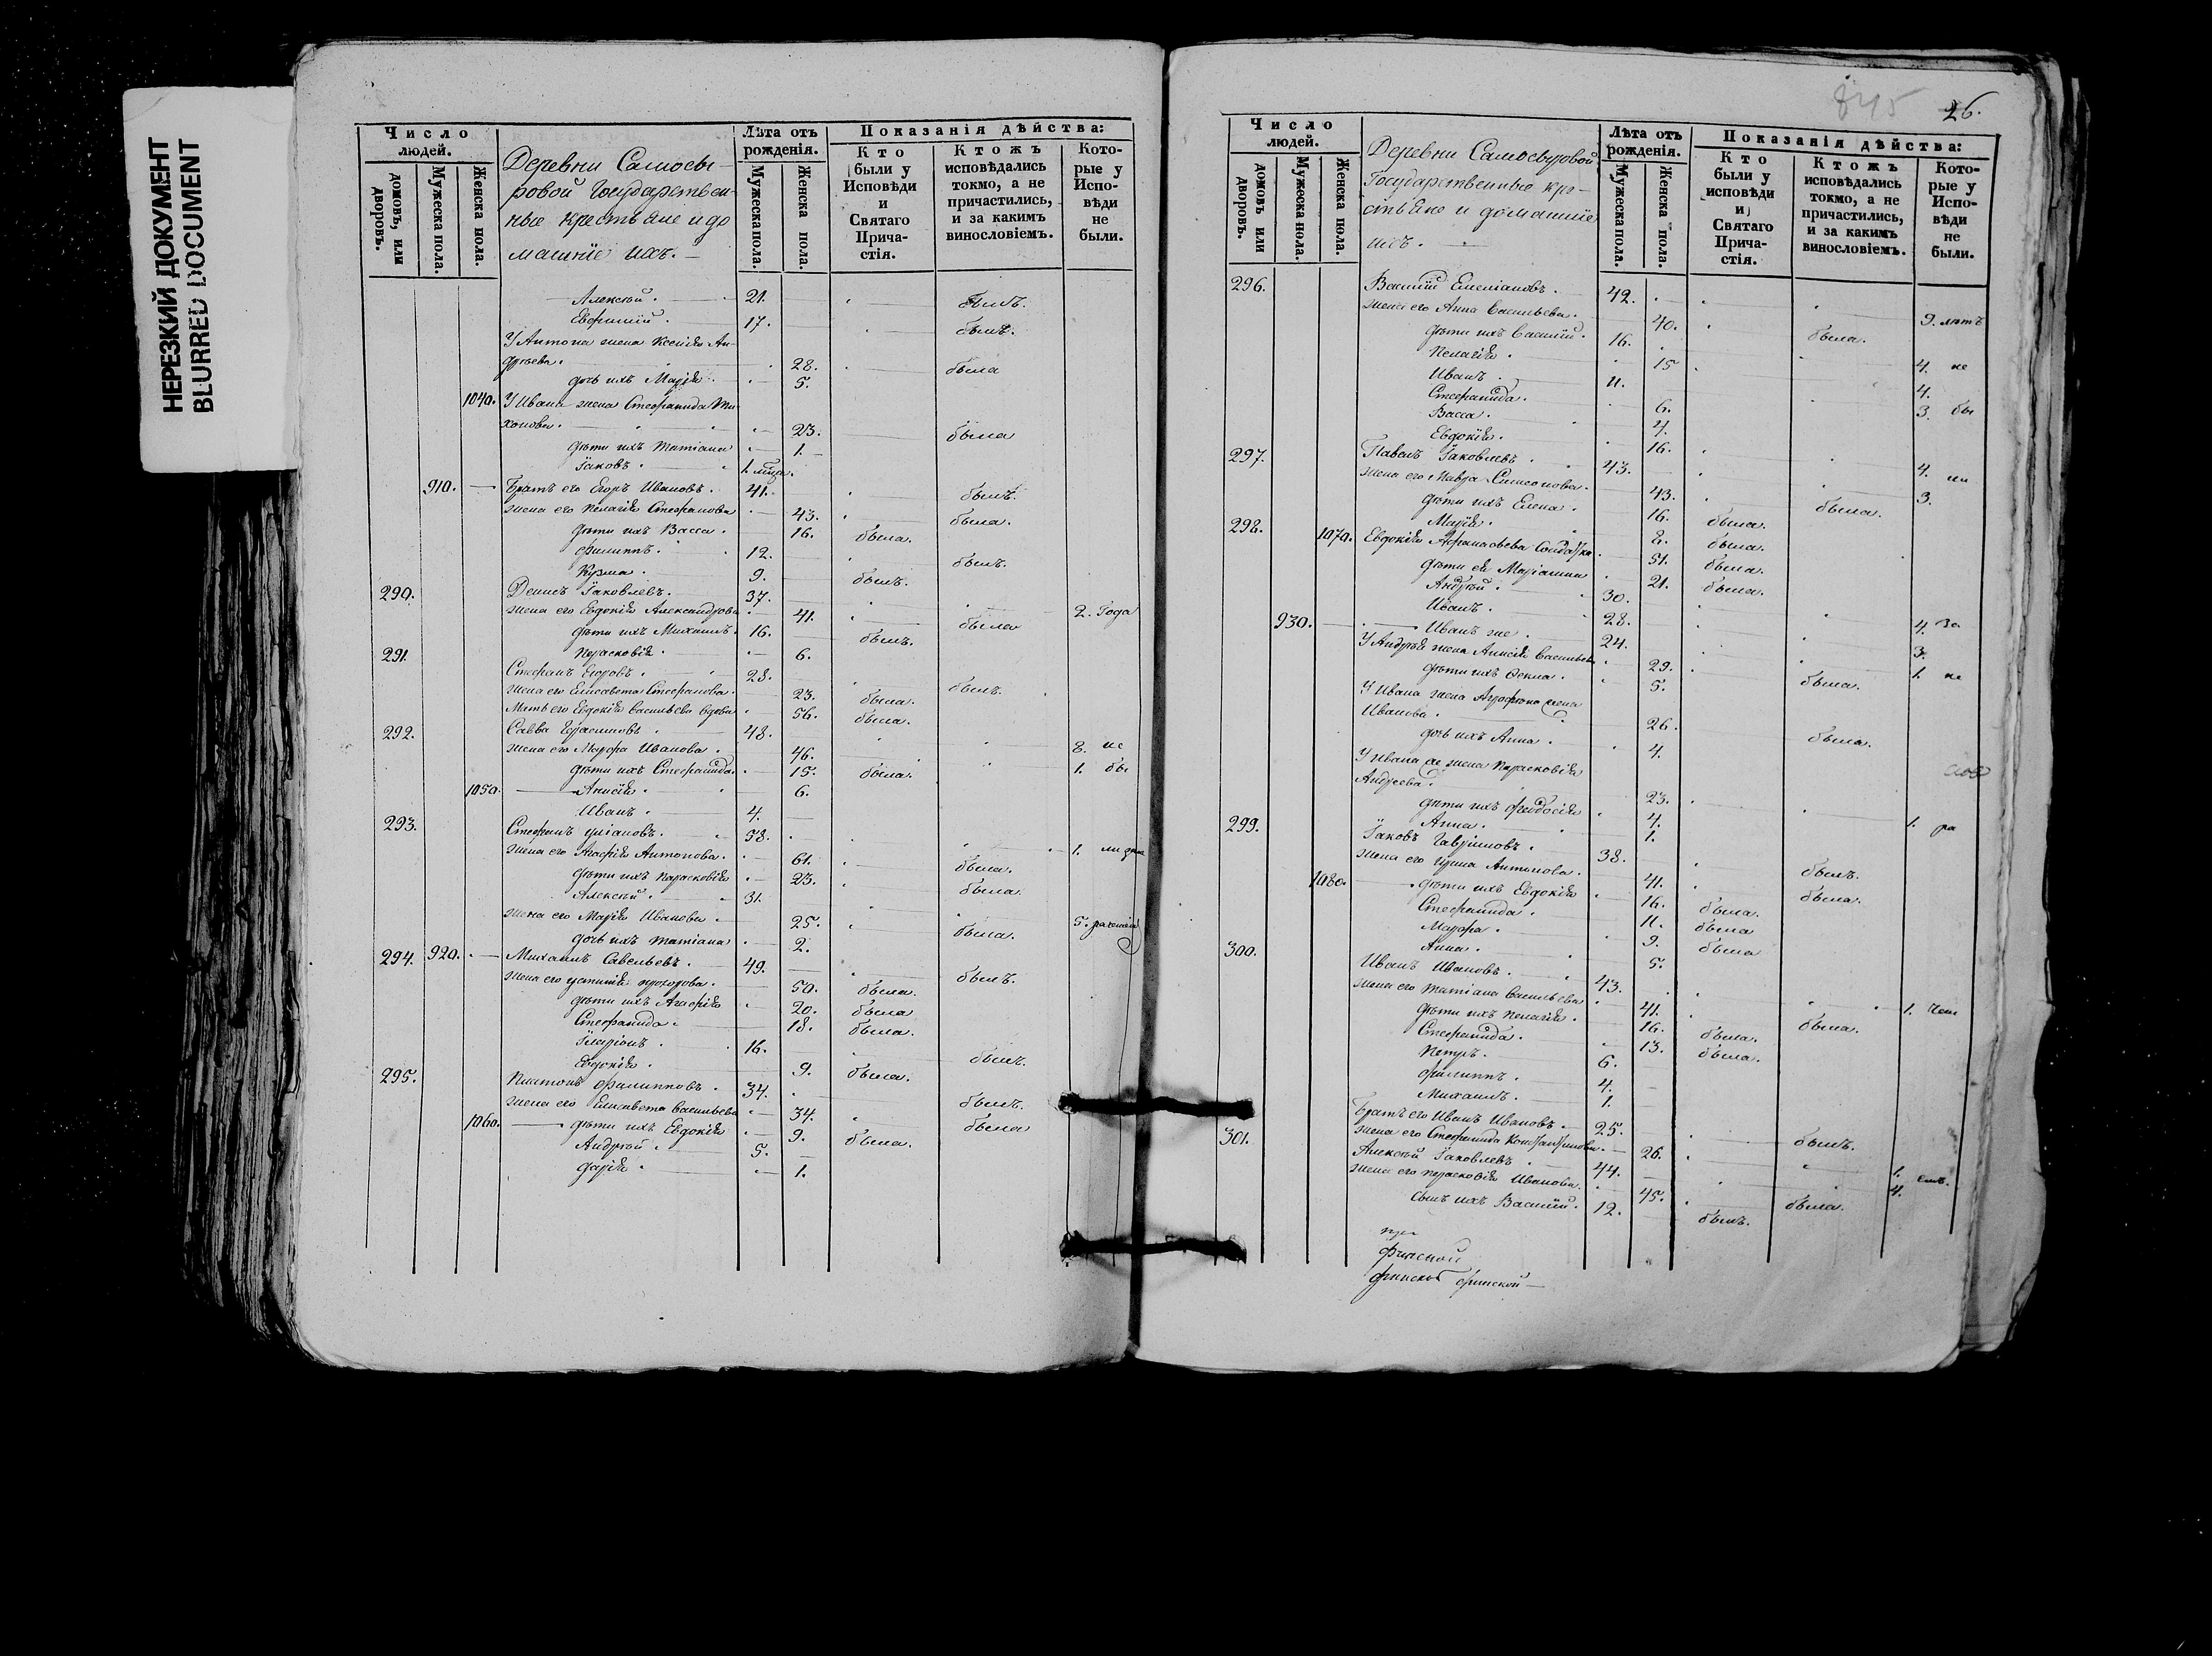 НЕРЕЗКИЙ ДОКУМЕНТ
BLURRED DOCUMENT
Число людей.
домовъ, или дворовъ.
Мужеска пола.
Женска пола.
Деревни Самосы-
ровой Государствен-
ные крестьяне и до
машніе ихъ. —
Лѣта отъ рожденія.
Мужеска пола.
Женска пола.
Показанія дѣйства:
Кто были у Исповѣди и Святаго Прича-стія.
Ктожъ исповѣдались токмо, а не причастились, и за какимъ винословіемъ.
Кото-рые у Испо-вѣди не были.
Алексѣй. 21. былъ.
Евфимій. 17. былъ.
У Антона жена Ксенія Ан-
дрѣева. 28. была
дочь ихъ Марія. 5.
1040. У Ивана жена Стефанида Ти-
хонова. 23. была
дѣти ихъ Татіана 1.
Іаковъ. 1. мѣсяц.
910. Братъ его Егоръ Ивановъ. 41. былъ.
жена его Пелагія Стефанова 43. была.
дѣти ихъ Васса. 16. была.
Филиппъ. 12. былъ.
Кузма. 9. былъ.
290. Денисъ Іаковлевъ. 37. 2. Года
жена его Евдокія Александрова 41. была
дѣти ихъ Михаилъ. 16. былъ.
Парасковія. 6.
291. Стефанъ Егоровъ. 28. былъ.
жена его Елисавета Стефанова. 23. была.
Мать его Евдокія Васильева вдова 56. была.
292. Савва Герасимовъ. 48. 8. не
жена его Марфа Иванова. 46. 1. бы
дѣти ихъ Стефанида. 15. была.
1050. Анисія. 6.
Иванъ. 4.
293. Стефанъ Уліановъ. 58. 1. ли за
жена его Агафія Антонова. 61. была.
дѣти ихъ Парасковія 23. была.
Алексѣй. 31. 5. раченіемъ
жена его Марія Иванова. 25. была.
дочь ихъ Татіана 2.
294. 920. Михаилъ Савельевъ. 49. былъ.
жена его Устинія Прохорова. 50. была.
дѣти ихъ Агафія 20. была
Стефанида. 18. была.
Иларіонъ. 16. былъ.
Евдокія. 9. была.
295. Платонъ Филипповъ. 34. былъ.
жена его Елисавета Васильева 34. была
1060. дѣти ихъ Евдокія 9. была.
Андрей. 5.
Дарія. 1.
845
26.
Число людей.
домовъ или дворовъ.
Мужеска пола.
Женска пола.
Деревни Самосыровой
Государственные кре-
стьяне и домашніе
ихъ.
Лѣта отъ рожденія.
Мужеска пола.
Женска пола.
Показанія дѣйства:
Кто были у исповѣди и Святаго Прича-стія.
Ктожъ исповѣдались токмо, а не причастились, и за какимъ винословіемъ.
Кото-рые у Испо-вѣди не были.
296. Василій Емеліановъ. 42. 9. лѣтъ
жена его Анна Васильева. 40. была.
дѣти ихъ Василій. 16. 4. не
Пелагія. 15 4.
Иванъ. 11. 3. бы
Стефанида. 6.
Васса. 4.
Евдокія. 16. 4.
297. Павелъ Іаковлевъ. 43. 3. ли
жена его Мавра Симеонова. 43. была.
дѣти ихъ Елена. 16. была.
Марія. 8. была.
298. 1070. Евдокія Афанасьева Солдатка. 51. была.
дѣти ея Маріанна 21. была.
Андрей. 30. 4. за
Иванъ. 28. 3.
930. Иванъ же. 24. 1. не
У Андрея жена Анисія Васильева 29. была.
дѣти ихъ Фекла. 5.
У Ивана жена Агрофена
Иванова. 26. была.
дочь ихъ Анна. 4.
У Ивана же жена Парасковія
Андреева. 23. 1. ра
дѣти ихъ Феодосія 4.
Анна. 1.
299. Іаковъ Гавриловъ. 38. былъ.
жена его Ирина Антонова. 41. была.
1080. дѣти ихъ Евдокія 16. была.
Стефанида. 11. была
Марфа. 9. была
Анна. 5.
300. Иванъ Ивановъ. 43. 1. чені
жена его Татіана Васильева 41. была.
дѣти ихъ Пелагія. 16. была.
Стефанида. 13. была.
Петръ. 6.
Филиппъ. 4.
Михаилъ. 1.
Братъ его Иванъ Ивановъ. 25. былъ.
жена его Стефанида Константинова. 26. 1. емъ.
301. Алексѣй Іаковлевъ 44. 4.
жена его Парасковія Иванова. 45. была.
сынъ ихъ Василій. 12. былъ.